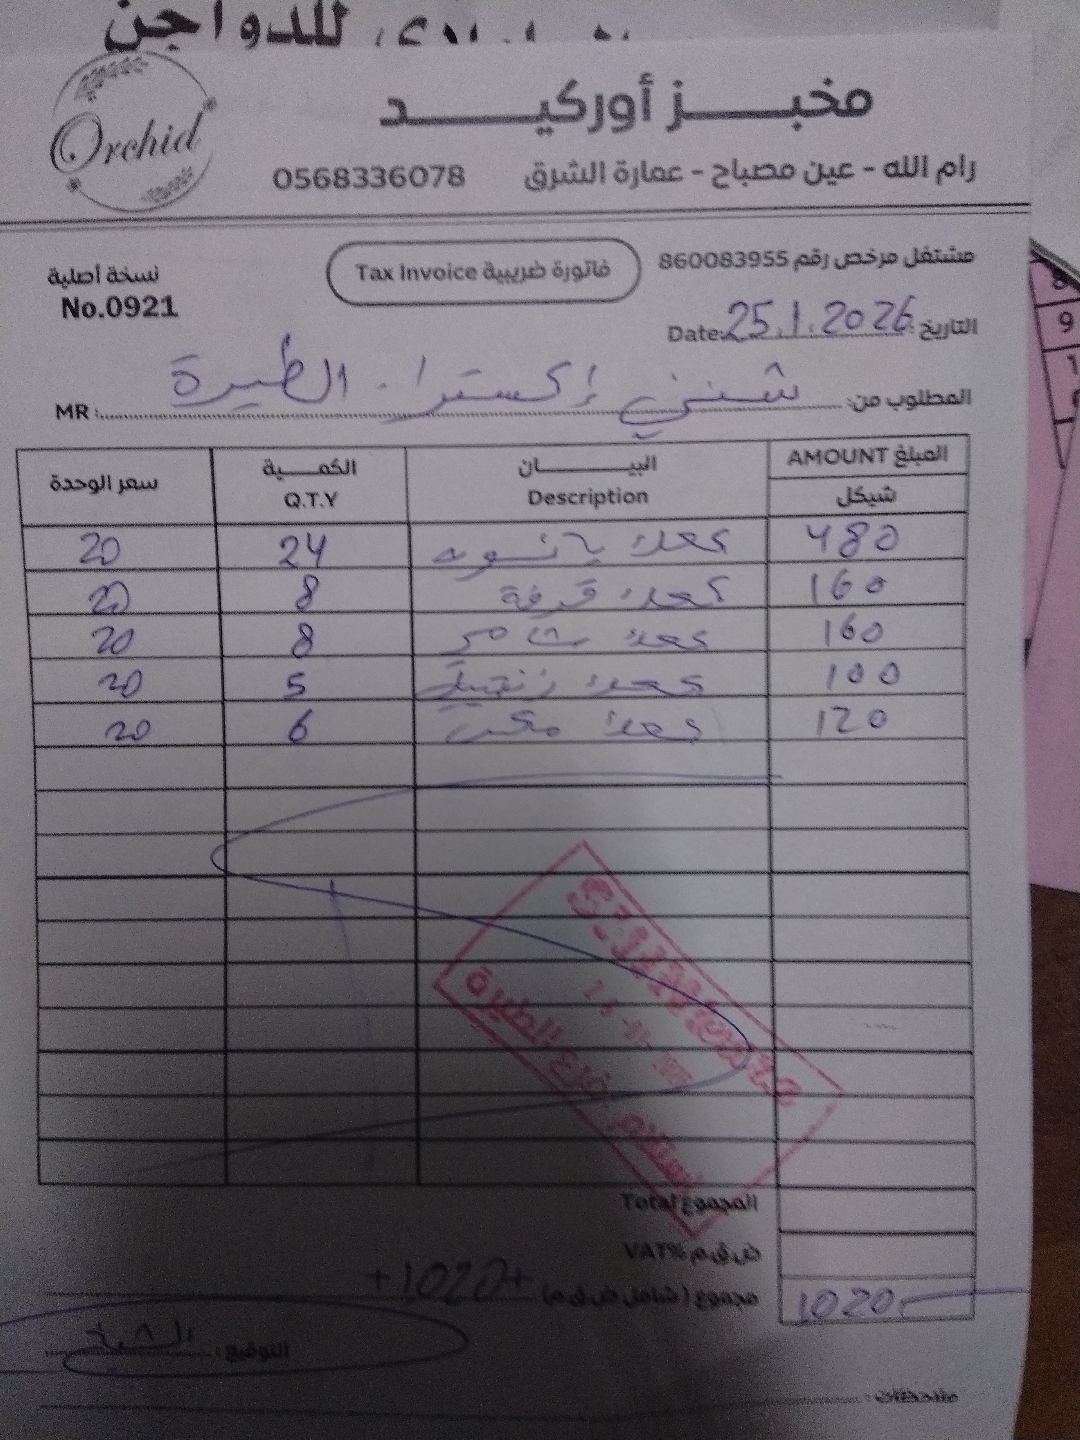 للدواجن
Orchid
مخبز أوركيد
رام الله - عين مصباح - عمارة الشرق 0568336078
نسخة أصلية
No.0921
فاتورة ضريبية Tax Invoice
مشتغل مرخص رقم 860083955
التاريخ: Date: 25.1.2026
المطلوب من: شيني إكسترا. الطيرة MR:
المبلغ AMOUNT شيكل البيان Description الكمية Q.T.Y سعر الوحدة
480 كعك يانسون 24 20
160 كعك قرفة 8 20
160 كعك 8 20
100 كعك زنجبيل 5 20
120 كعك 6 20
المجموع Total
ض.ق.م %VAT
مجموع (شامل ض.ق.م) +1020+ 1020
التوقيع:
ملاحظات:
فرع الطيرة